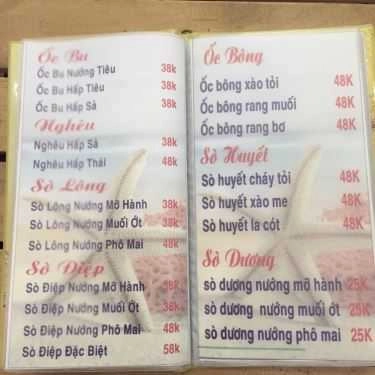 Ốc Bu
Ốc Bu Nướng Tiêu 38k
Ốc Bu Hấp Tiêu 38k
Ốc Bu Hấp Sả 38k
Nghêu
Nghêu Hấp Sả 38k
Nghêu Hấp Thái 48k
Sò Lông
Sò Lông Nướng Mỡ Hành 38k
Sò Lông Nướng Muối Ớt 38k
Sò Lông Nướng Phô Mai 48k
Sò Điệp
Sò Điệp Nướng Mỡ Hành 38k
Sò Điệp Nướng Muối Ớt 38k
Sò Điệp Nướng Phô Mai 48k
Sò Điệp Đặc Biệt 58k
Ốc Bông
Ốc bông xào tỏi 48K
Ốc bông rang muối 48K
Ốc bông rang bơ 48K
Sò Huyết
Sò huyết cháy tỏi 48K
Sò huyết xào me 48K
Sò huyết la cót 48K
Sò Dương
sò dương nướng mỡ hành 25K
sò dương nướng muối ớt 25K
sò dương nướng phô mai 25K